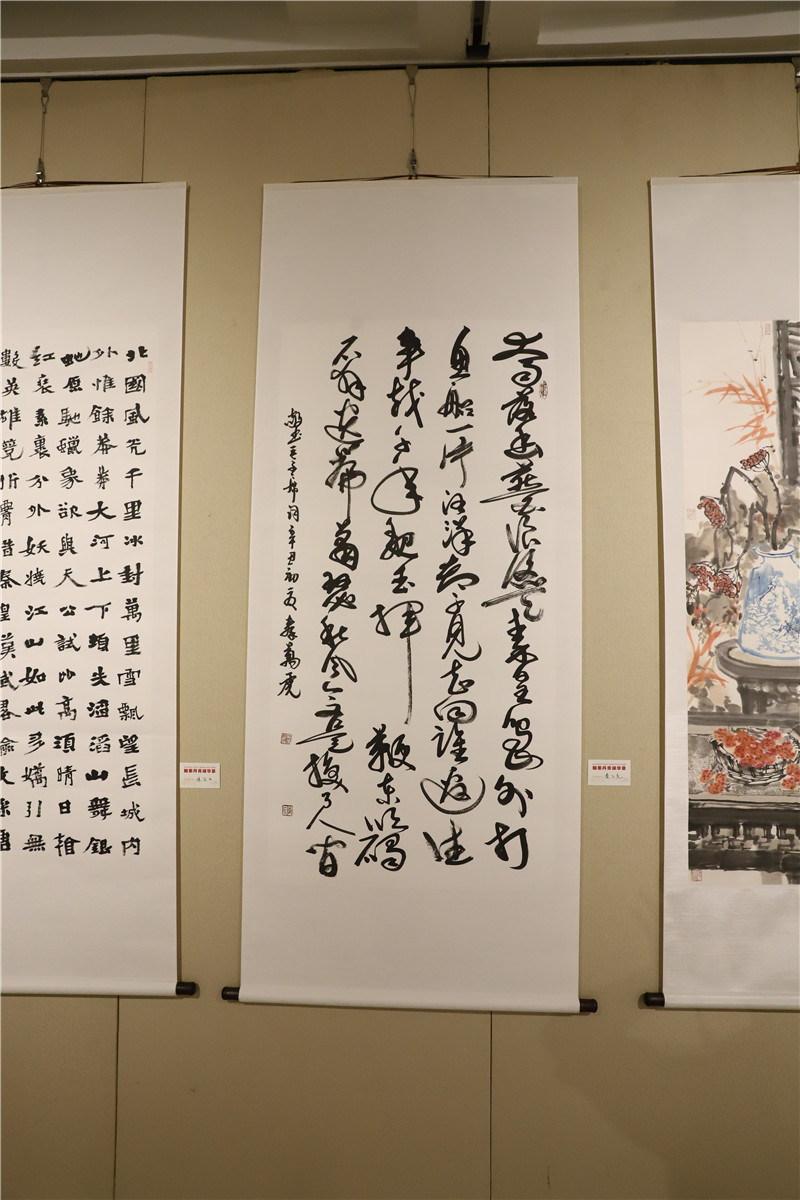 大雨落幽燕白浪滔天秦皇島外打
魚船一片汪洋都不見知向誰邊往
事越千年魏武揮鞭東臨碣
石有遺篇蕭瑟秋風今又是換了人間
毛主席詞辛丑初夏
北國風光千里冰封萬里雪飄望長城內
外惟餘莽莽大河上下頓失滔滔山舞銀
蛇原馳蠟象欲與天公試比高須晴日看
紅裝素裹分外妖嬈江山如此多嬌引無
數英雄競折腰昔秦皇漢武略輸文采唐